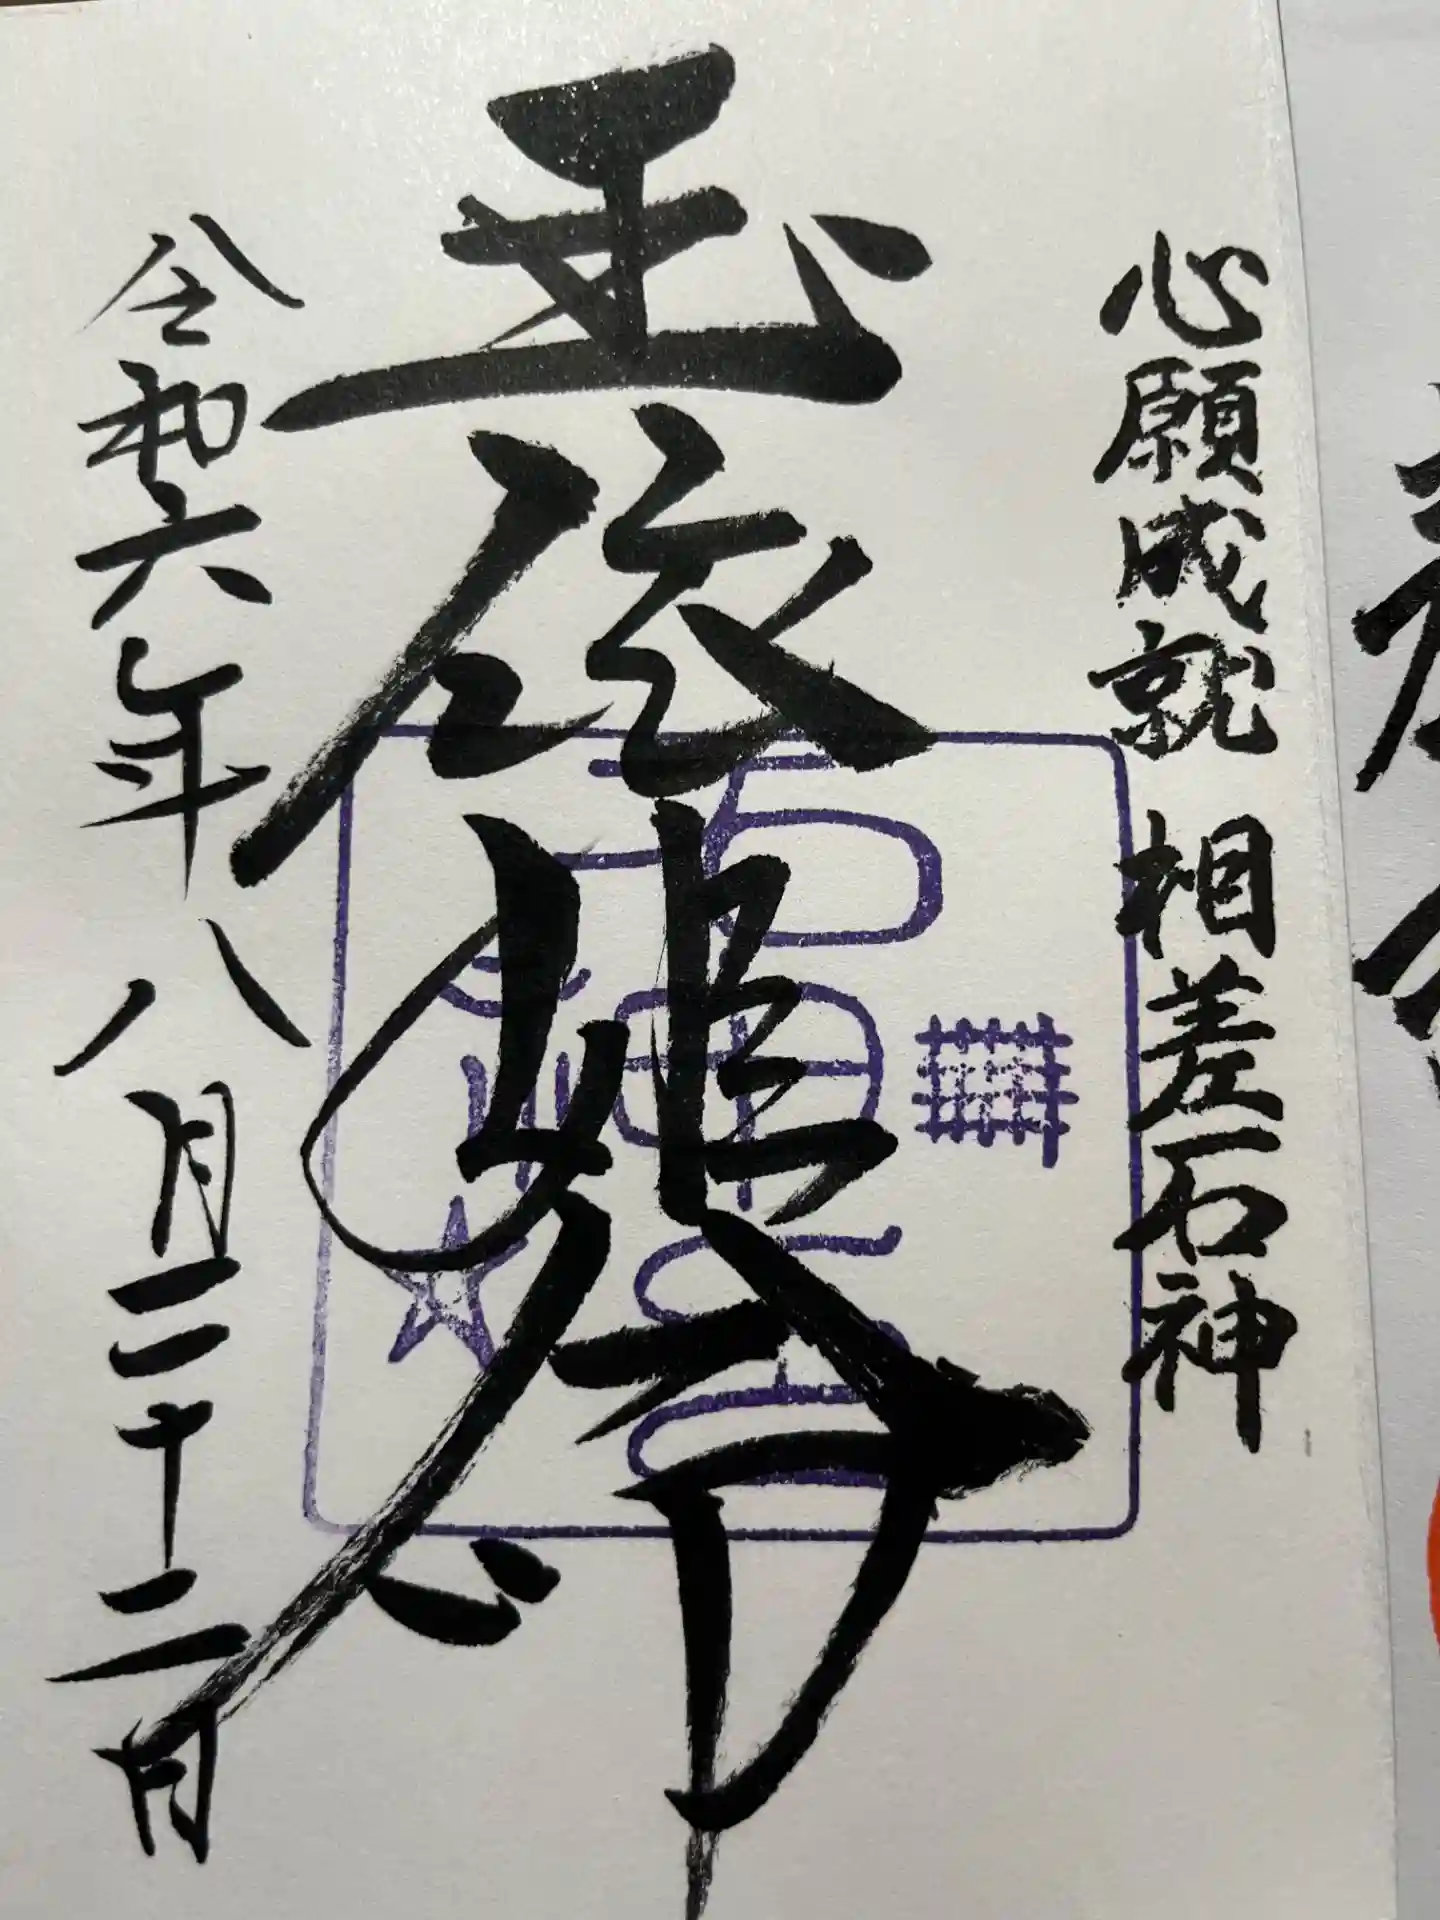 心願成就 相差石神
玉依姫命
令和六年八月二十二日